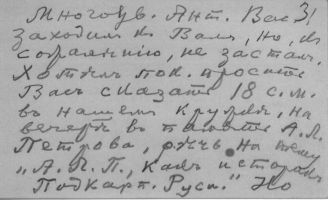 Многоув. Ант. Вас.!
Заходил к Вам, но, к
сожалению, не застал.
Хотел пок. просить
Вас сказать 18 с. м.
въ нашемъ кружкѣ, на
вечерѣ въ память А. Л.
Петрова, рѣчь на тему
"А. Л. П., какъ историкъ
Подкарп. Руси." Но